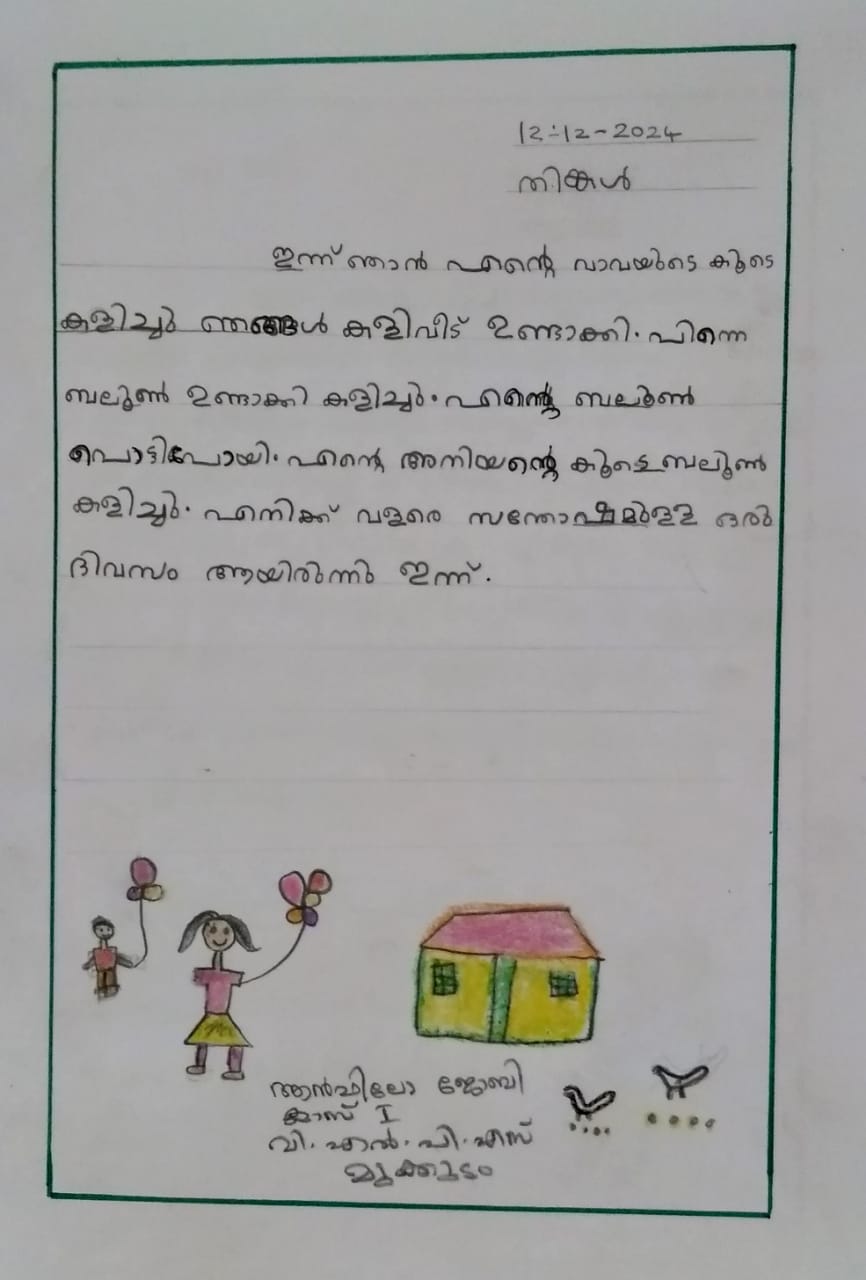 12-12-2024
തിങ്കൾ
ഇന്ന് ഞാൻ എന്റെ വാവയുടെ കൂടെ
കളിച്ചു ഞങ്ങൾ കളിവീട് ഉണ്ടാക്കി. പിന്നെ
ബലൂൺ ഉണ്ടാക്കി കളിച്ചു. എന്റെ ബലൂൺ
പൊട്ടിപോയി. എന്റെ അനിയന്റെ കൂടെ ബലൂൺ
കളിച്ചു. എനിക്ക് വളരെ സന്തോഷമുള്ള ഒരു
ദിവസം ആയിരുന്നു ഇന്ന്.
ആൻഫിലോ ജോബി
ക്ലാസ് I
വി. എൽ. പി. എസ്
മുക്കുടം